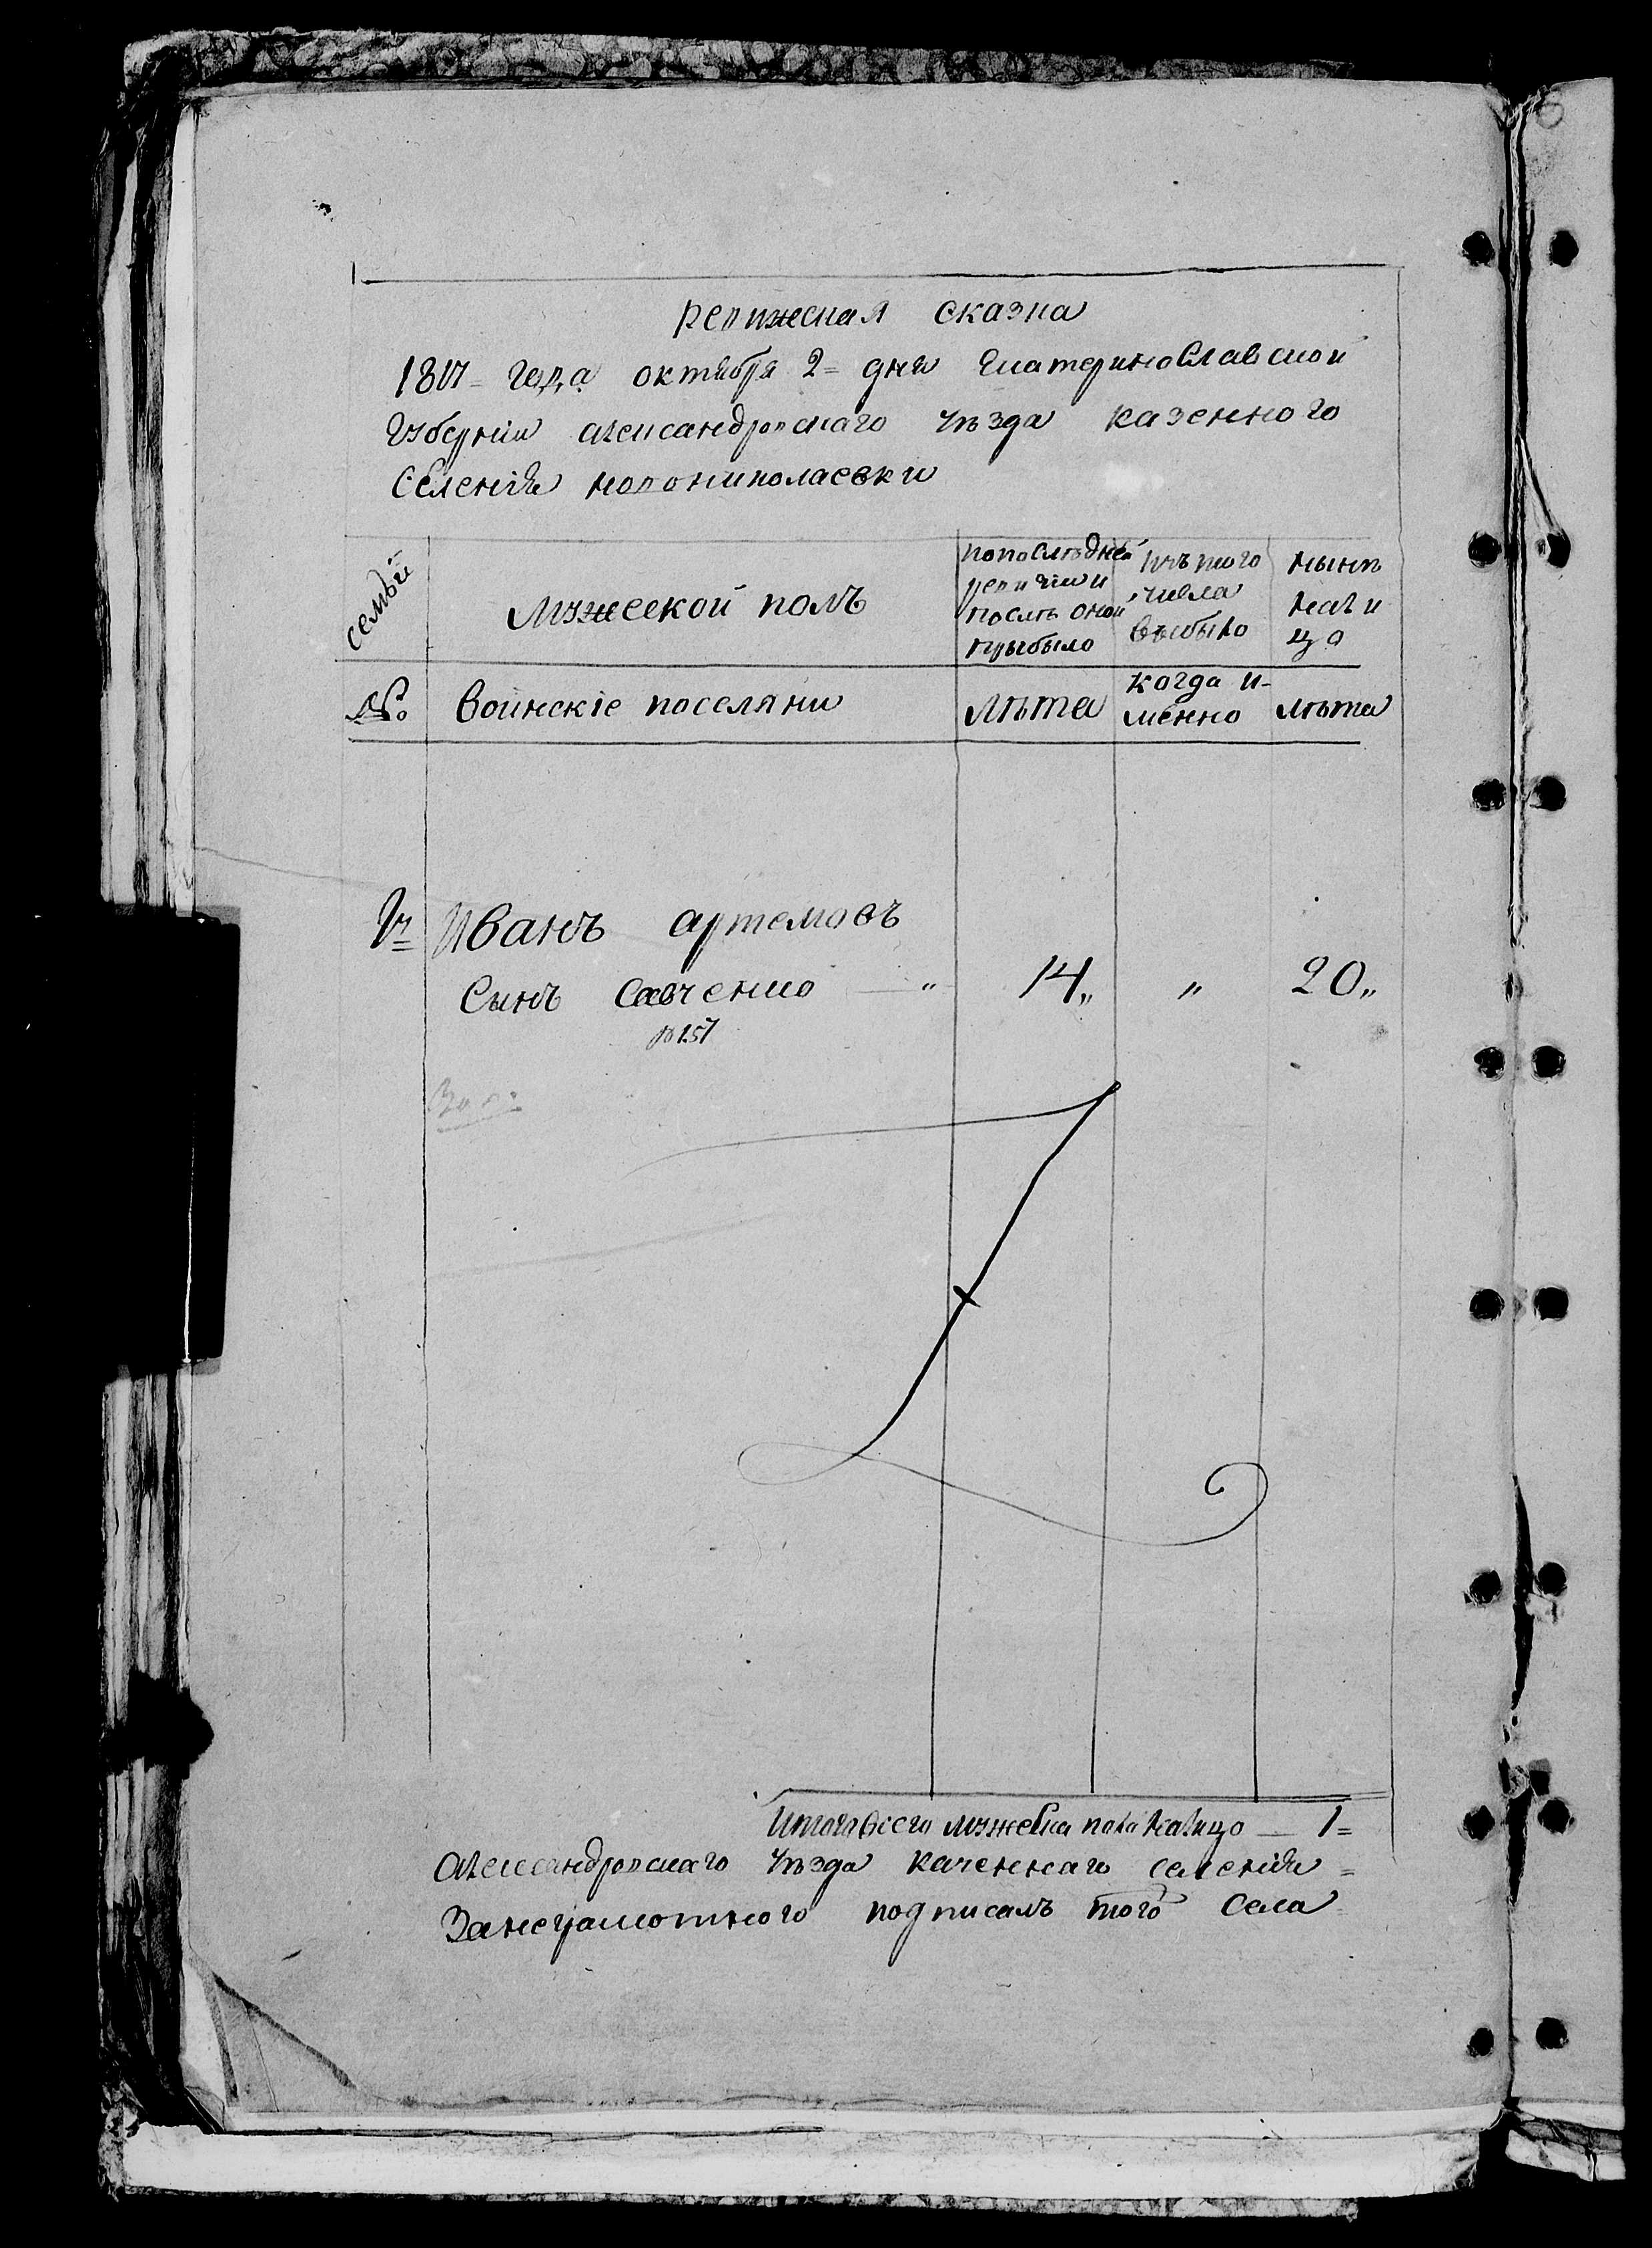 Ревижская сказка
1817= года октября 2= дня Екатеринославской
Губернии александровскаго уѣзда казенного
Селенія новониколаевки
семьи
мужеской полъ
попослѣдней ревизіи и послѣ оной прибыло
изъ того числа выбыло
нынѣ налицо
№
воинскіе поселяни
лѣта
когда и-менно
лѣта
Иванъ артемовъ
Сынъ Савченко — " 14„ " 20„
Итого всего мужеска пола налицо — 1=
александровскаго уѣзда казеннаго селенія =
Занеграмотного подписалъ того села